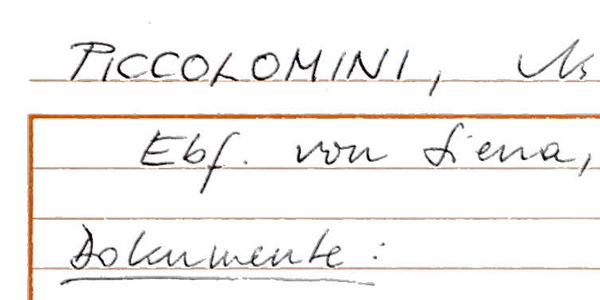 PICCOLOMINI,
Ebf. von Siena,
Dokumente: